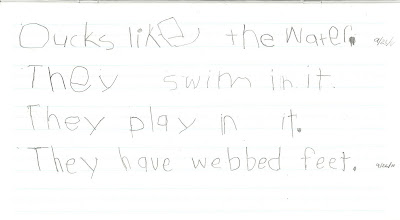 Ducks like the water.
They swim in it.
They play in it.
They have webbed feet.